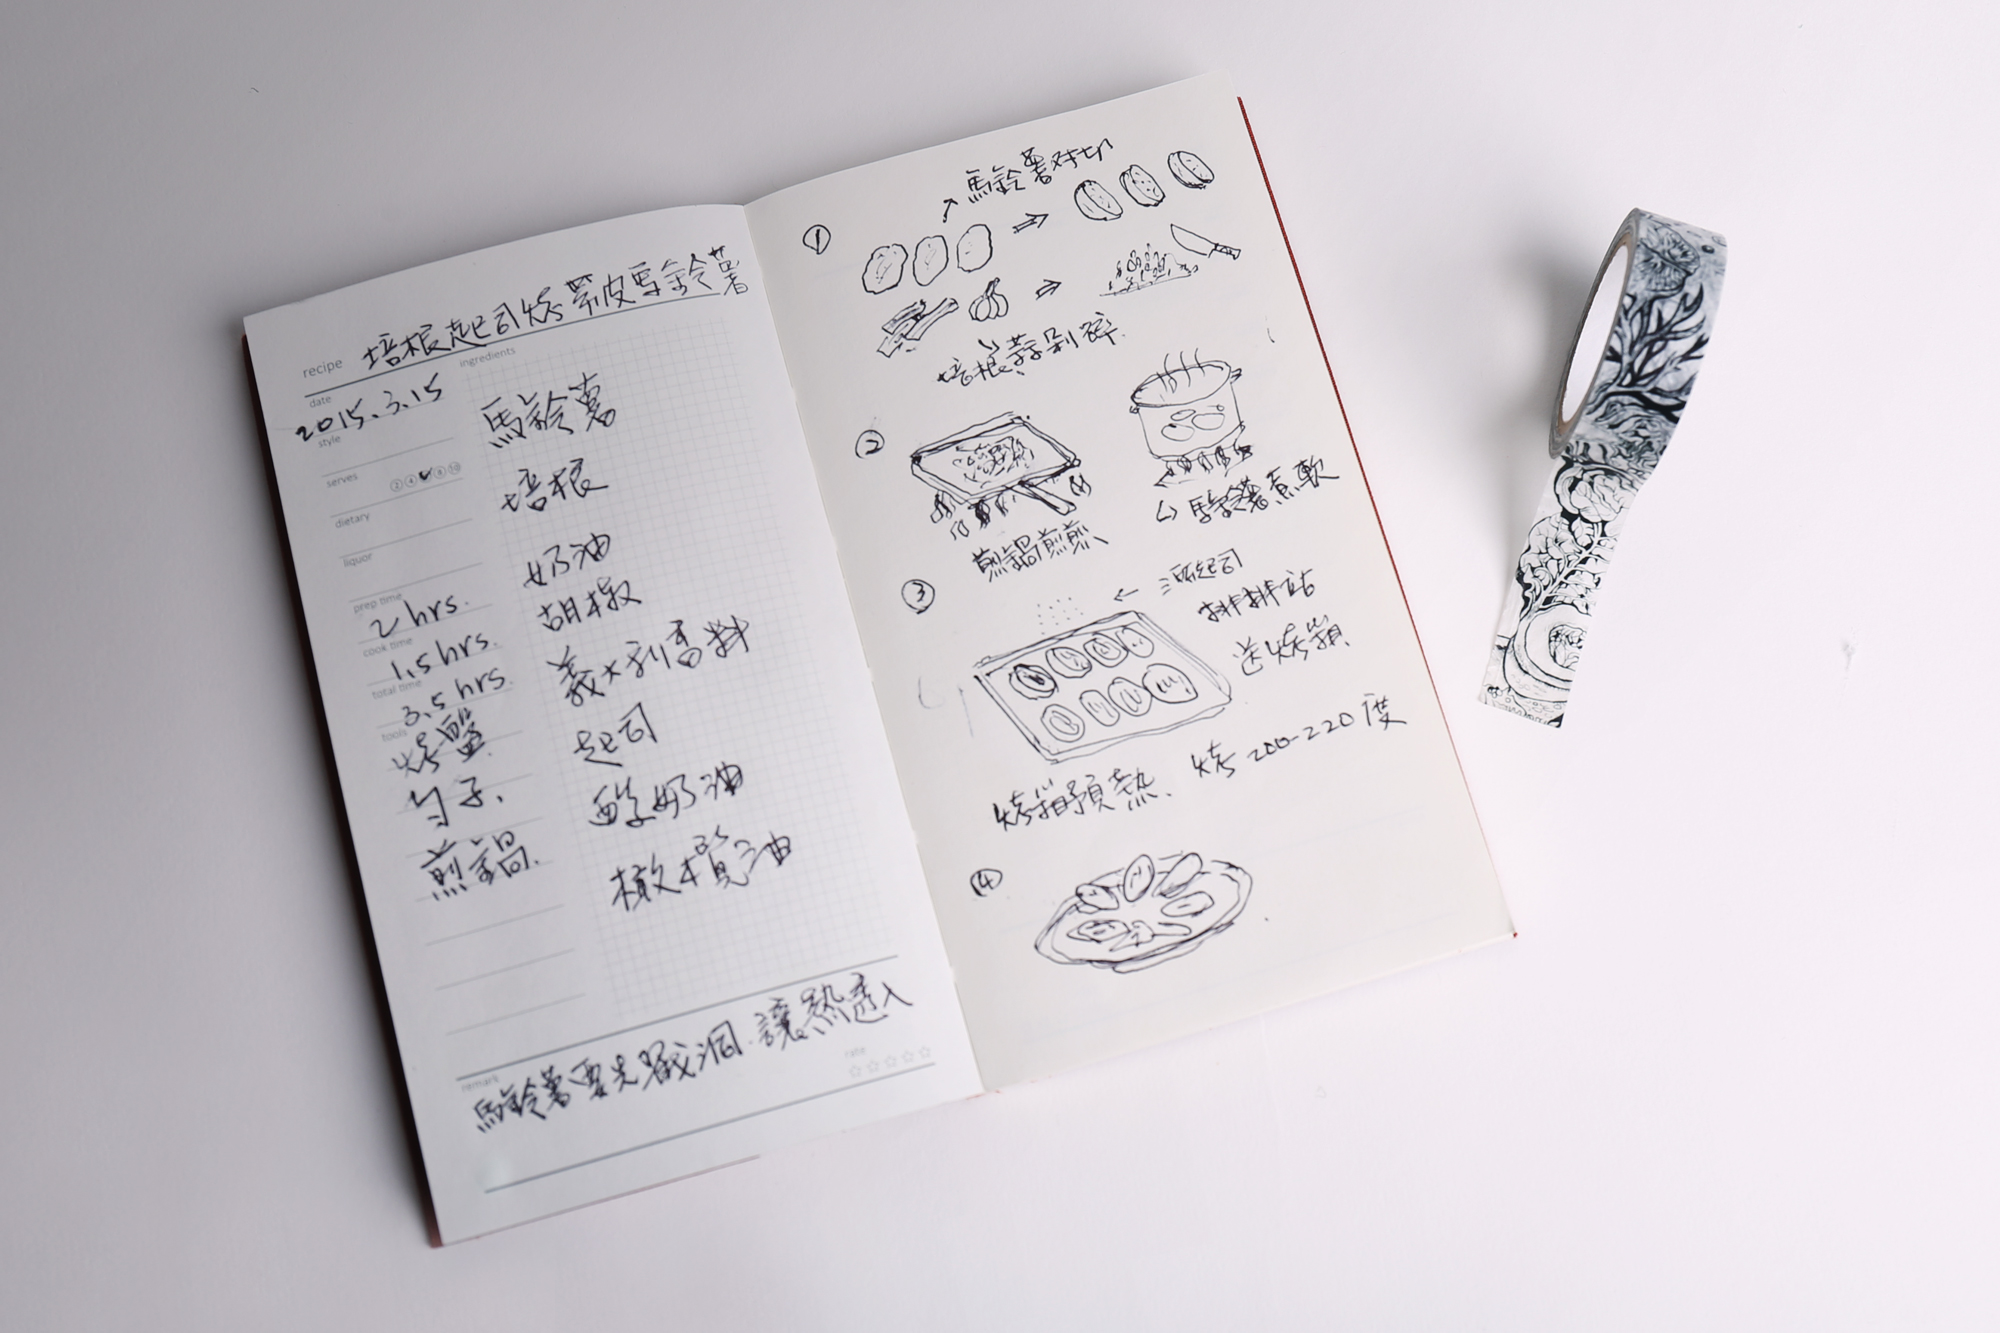 recipe 培根起司烤帶皮馬鈴薯
date
2015.3.15
style
serves ② ④ ⑧ ⑩
dietary
liquor
prep time
2 hrs.
cook time
1.5 hrs.
total time
3.5 hrs.
tools
烤盤
勺子.
煎鍋.
ingredients
馬鈴薯
培根
奶油
胡椒
義大利香料
起司
酸奶油
橄欖油
remark
馬鈴薯要先戳洞.讓熱透入
rate ☆☆☆☆☆
①
馬鈴薯對切
培根蒜剁碎.
②
煎鍋煎煎
馬鈴薯煮軟
③
起司
排排站
送烤箱
烤箱預熱、烤 200-220 度
④